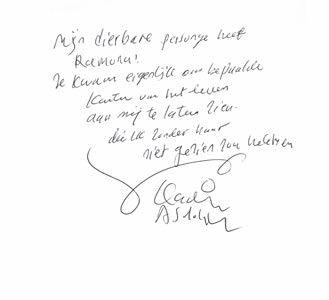 Mijn dierbare persoontje heet
Ramona!
Ze kwam eigenlijk om bepaalde
kanten van het leven
aan mij te laten zien.
die ik zonder haar
niet gezien zou hebben